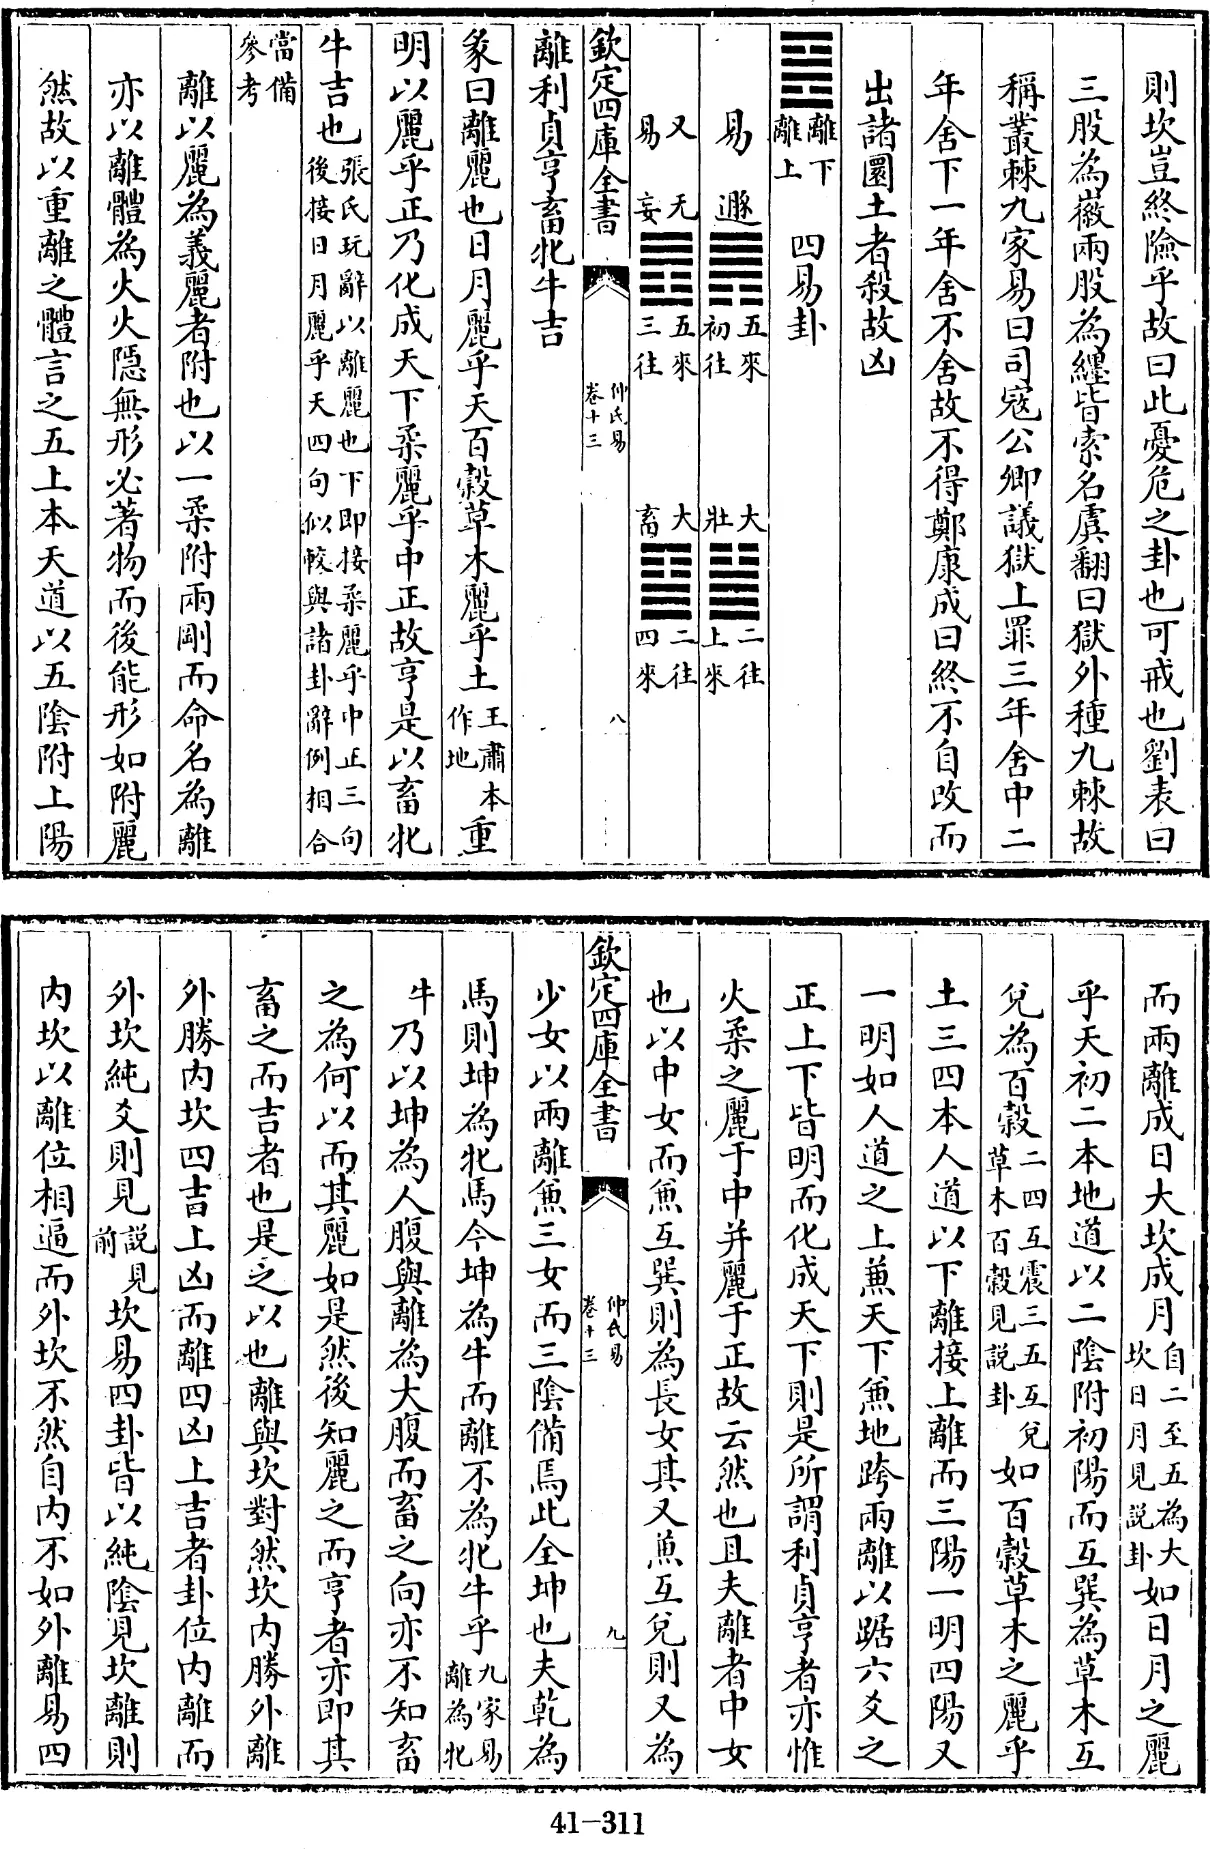 則坎豈終險乎故曰此憂危之卦也可戒也劉表曰
三股為徽兩股為纆皆索名虞翻曰獄外種九棘故
稱叢棘九家易曰司寇公卿議獄上罪三年舍中二
年舍下一年舍不舍故不得鄭康成曰終不自改而
出諸圜土者殺故凶
離下離上 四易卦
易 遯 五來初往 大壯 二往上來
又易 无妄 五來三往 大畜 二往四來
欽定四庫全書 仲氏易卷十三 八
離利貞亨畜牝牛吉
彖曰離麗也日月麗乎天百穀草木麗乎土王肅本作地重
明以麗乎正乃化成天下柔麗乎中正故亨是以畜牝
牛吉也張氏玩辭以離麗也下即接柔麗乎中正三句後接日月麗乎天四句似較與諸卦辭例相合
當備參考
離以麗為義麗者附也以一柔附兩剛而命名為離
亦以離體為火火隱無形必著物而後能形如附麗
然故以重離之體言之五上本天道以五陰附上陽
而兩離成日大坎成月自二至五為大坎日月見説卦如日月之麗
乎天初二本地道以二陰附初陽而互巽為草木互
兌為百穀二四互震三五互兌草木百穀見説卦如百穀草木之麗乎
土三四本人道以下離接上離而三陽一明四陽又
一明如人道之上兼天下兼地跨兩離以踞六爻之
正上下皆明而化成天下則是所謂利貞亨者亦惟
火柔之麗于中并麗于正故云然也且夫離者中女
也以中女而兼互巽則為長女其又兼互兌則又為
欽定四庫全書 仲氏易卷十三 九
少女以兩離兼三女而三陰備焉此全坤也夫乾為
馬則坤為牝馬今坤為牛而離不為牝牛乎九家易離為牝
牛乃以坤為人腹與離為大腹而畜之向亦不知畜
之為何以而其麗如是然後知麗之而亨者亦即其
畜之而吉者也是之以也離與坎對然坎内勝外離
外勝内坎四吉上凶而離四凶上吉者卦位内離而
外坎純爻則見説見前坎易四卦皆以純陰見坎離則
内坎以離位相逼而外坎不然自内不如外離易四
41-311